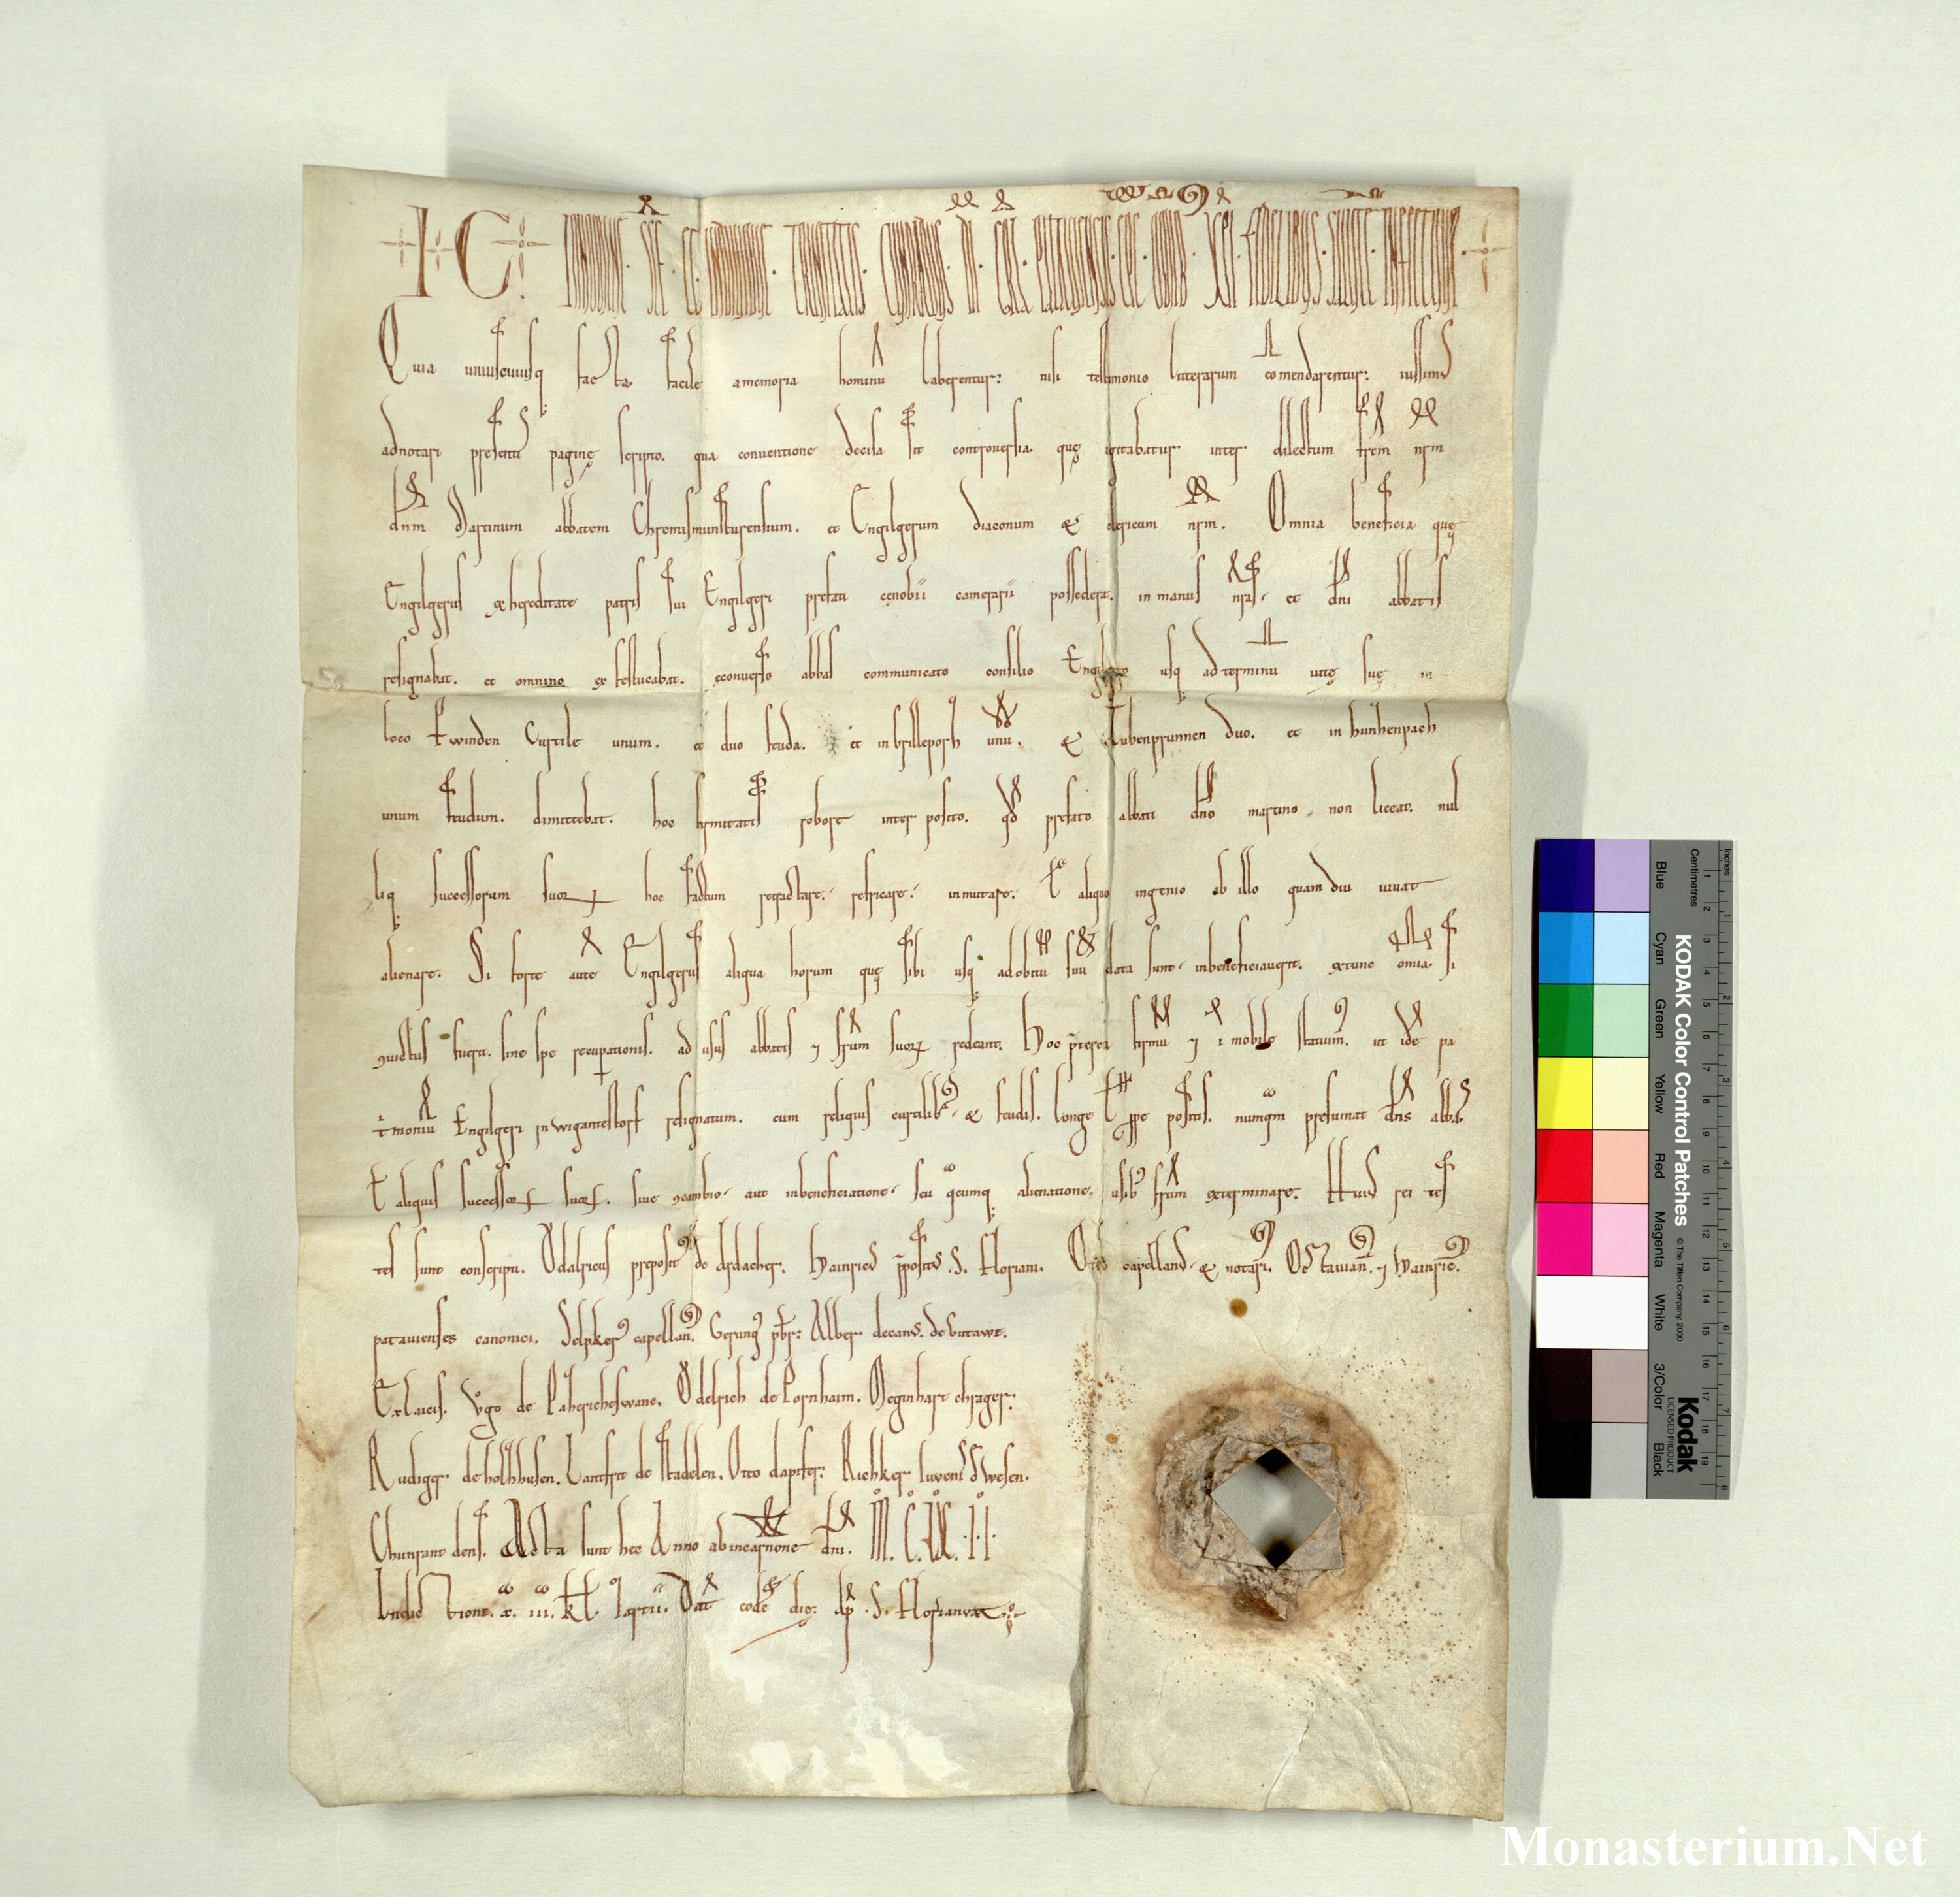 I C. IN NOMINE. SCE. ET. INDIVIDUE. TRINITATIS. CUNRADUS. DI. GRA. PATAVIENSIS. EPC. OMIB. XPI. FIDELIBUS. SALUTE. INPERPETUUM
Quia uniuscuiusq; facta facile a memoria hominū laberentur: nisi testimonio litterarum comendarentur: iussimus
adnotari presenti pagine scripto. qua conventione decisa sit controversia. que agitabatur inter dilectum frem nrm
dnm Martinum abbatem Chremismunsturensium. et Engilgerum diaconum & clericum nrm. Omnia beneficia que
Engilgerus ex hereditate patris sui Engilgeri prefati cenobii camerarii possederat. in manus nras. et dni abbatis
resignabat. et omnino exfestucabat. econverso abbas communicato consilio Engilgero usq; ad terminū vite sue in
loco winden Curtile unum. et duo feuda. et in brilleporh unū. & Lubenprunnen duo. et in hunhenpach
unum feudum. dimittebat. hoc firmitatis robore inter posito. qd prefato abbati dno martino non liceat. nul
liq; successorum suorum hoc factum retractare. refricare. inmutare. ł aliquo ingenio ab illo quam diu vivat
alienare. Si forte aute Engilgerus aliqua horum que sibi usq; ad obitū suū data sunt. inbeneficiaverit. extunc omia si
convictus fuerit. sine spe recuperationis. ad usus abbatis & frum suorum redeant. Hoc preterea firmū & immobile statuim. ut ide pa
trimoniū Engilgeri in wigantestorf resignatum. cum reliquis curtilib; & feudis. longe ł ppe positis. numqm presumat dns abbas
ł aliquis successorum suorum. sive concambio. aut inbeneficiatione. seu qocumq; alienatione. usib; frum exterminare. Huius rei tes
tes sunt conscripti. Ödalricus preposit de Ardacher. Hainricus ppositus S. Floriani. Otto capellanus & notari. Octavian. & Hainric.
patavienses canonici. Helpker capellan. Gerung pbr. Alber decanus de Butawe.
Ex Laicis. Vgo de Pahericheswanc. Ödelrich de Pornhaim. Meginhart chrager.
Rudiger de holhhusen. Lantfrit de stadelen. Otto dapifer. Richker iuvenis de Wesen.
Chunrant dens. Acta sunt hec Anno ab incarnone dni. M. C. LX. II
Indictione. x. iii. kl. Martii. Dat eode die. ap. S. Florianum
Blue
Cyan
Green
Yellow
Red
Magenta
White
3/Color
Black
Inches
Centimetres
KODAK Color Control Patches
© The Tiffen Company, 2000
Kodak
LICENSED PRODUCT
Monasterium.Net